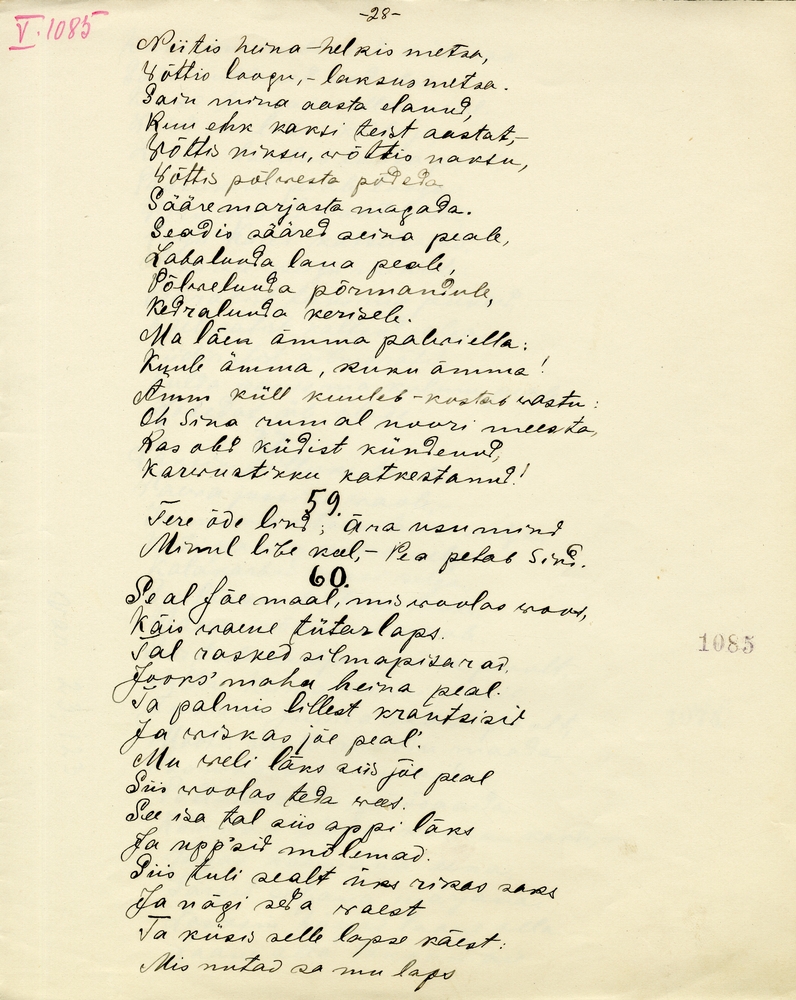 -28-
V. 1085
Niitis heina - helkis metsa,
Võttis loogu, - laksus metsa.
Sain mina aasta elanud,
Kuu ehk kaksi teist aastat, -
Võttis niksu, wõttis naksu,
Võttis põlwesta põdeda
Sääremarjasta magada.
Seadis sääred seina peale,
Labaluuda laua peale,
Põlweluuda põrmandule,
Kedraluuda kerisele.
Ma läen ämma palwiella:
Kuule ämma, kuku ämma!
Ämm küll kuuleb - kostab wastu:
Oh Sina rumal noori meesta,
Kas oled küdist kündenud,
Karwustikku katkestanud!
59.
Tere öde lind; Ära usu mind
Minul libe keel, - Pea petab Sind.
60.
Seal Jõe maal, mis woolas woos,
Käis waene tütarlaps.
Tal rasked silmapisarad,
Jooks' maha heina peal.
Ta palmis lillest krantsisid
Ja wiskas jõe peal'.
Mu weli läks siis jõe peal
Siis woolas teda wees.
See isa tal siis appi läks
Ja upp'sid mõlemad.
Siis tuli sealt üks rikas saks
Ja nägi seda waest
Ta küsis selle lapse käest:
Mis nutad sa mu laps
1085